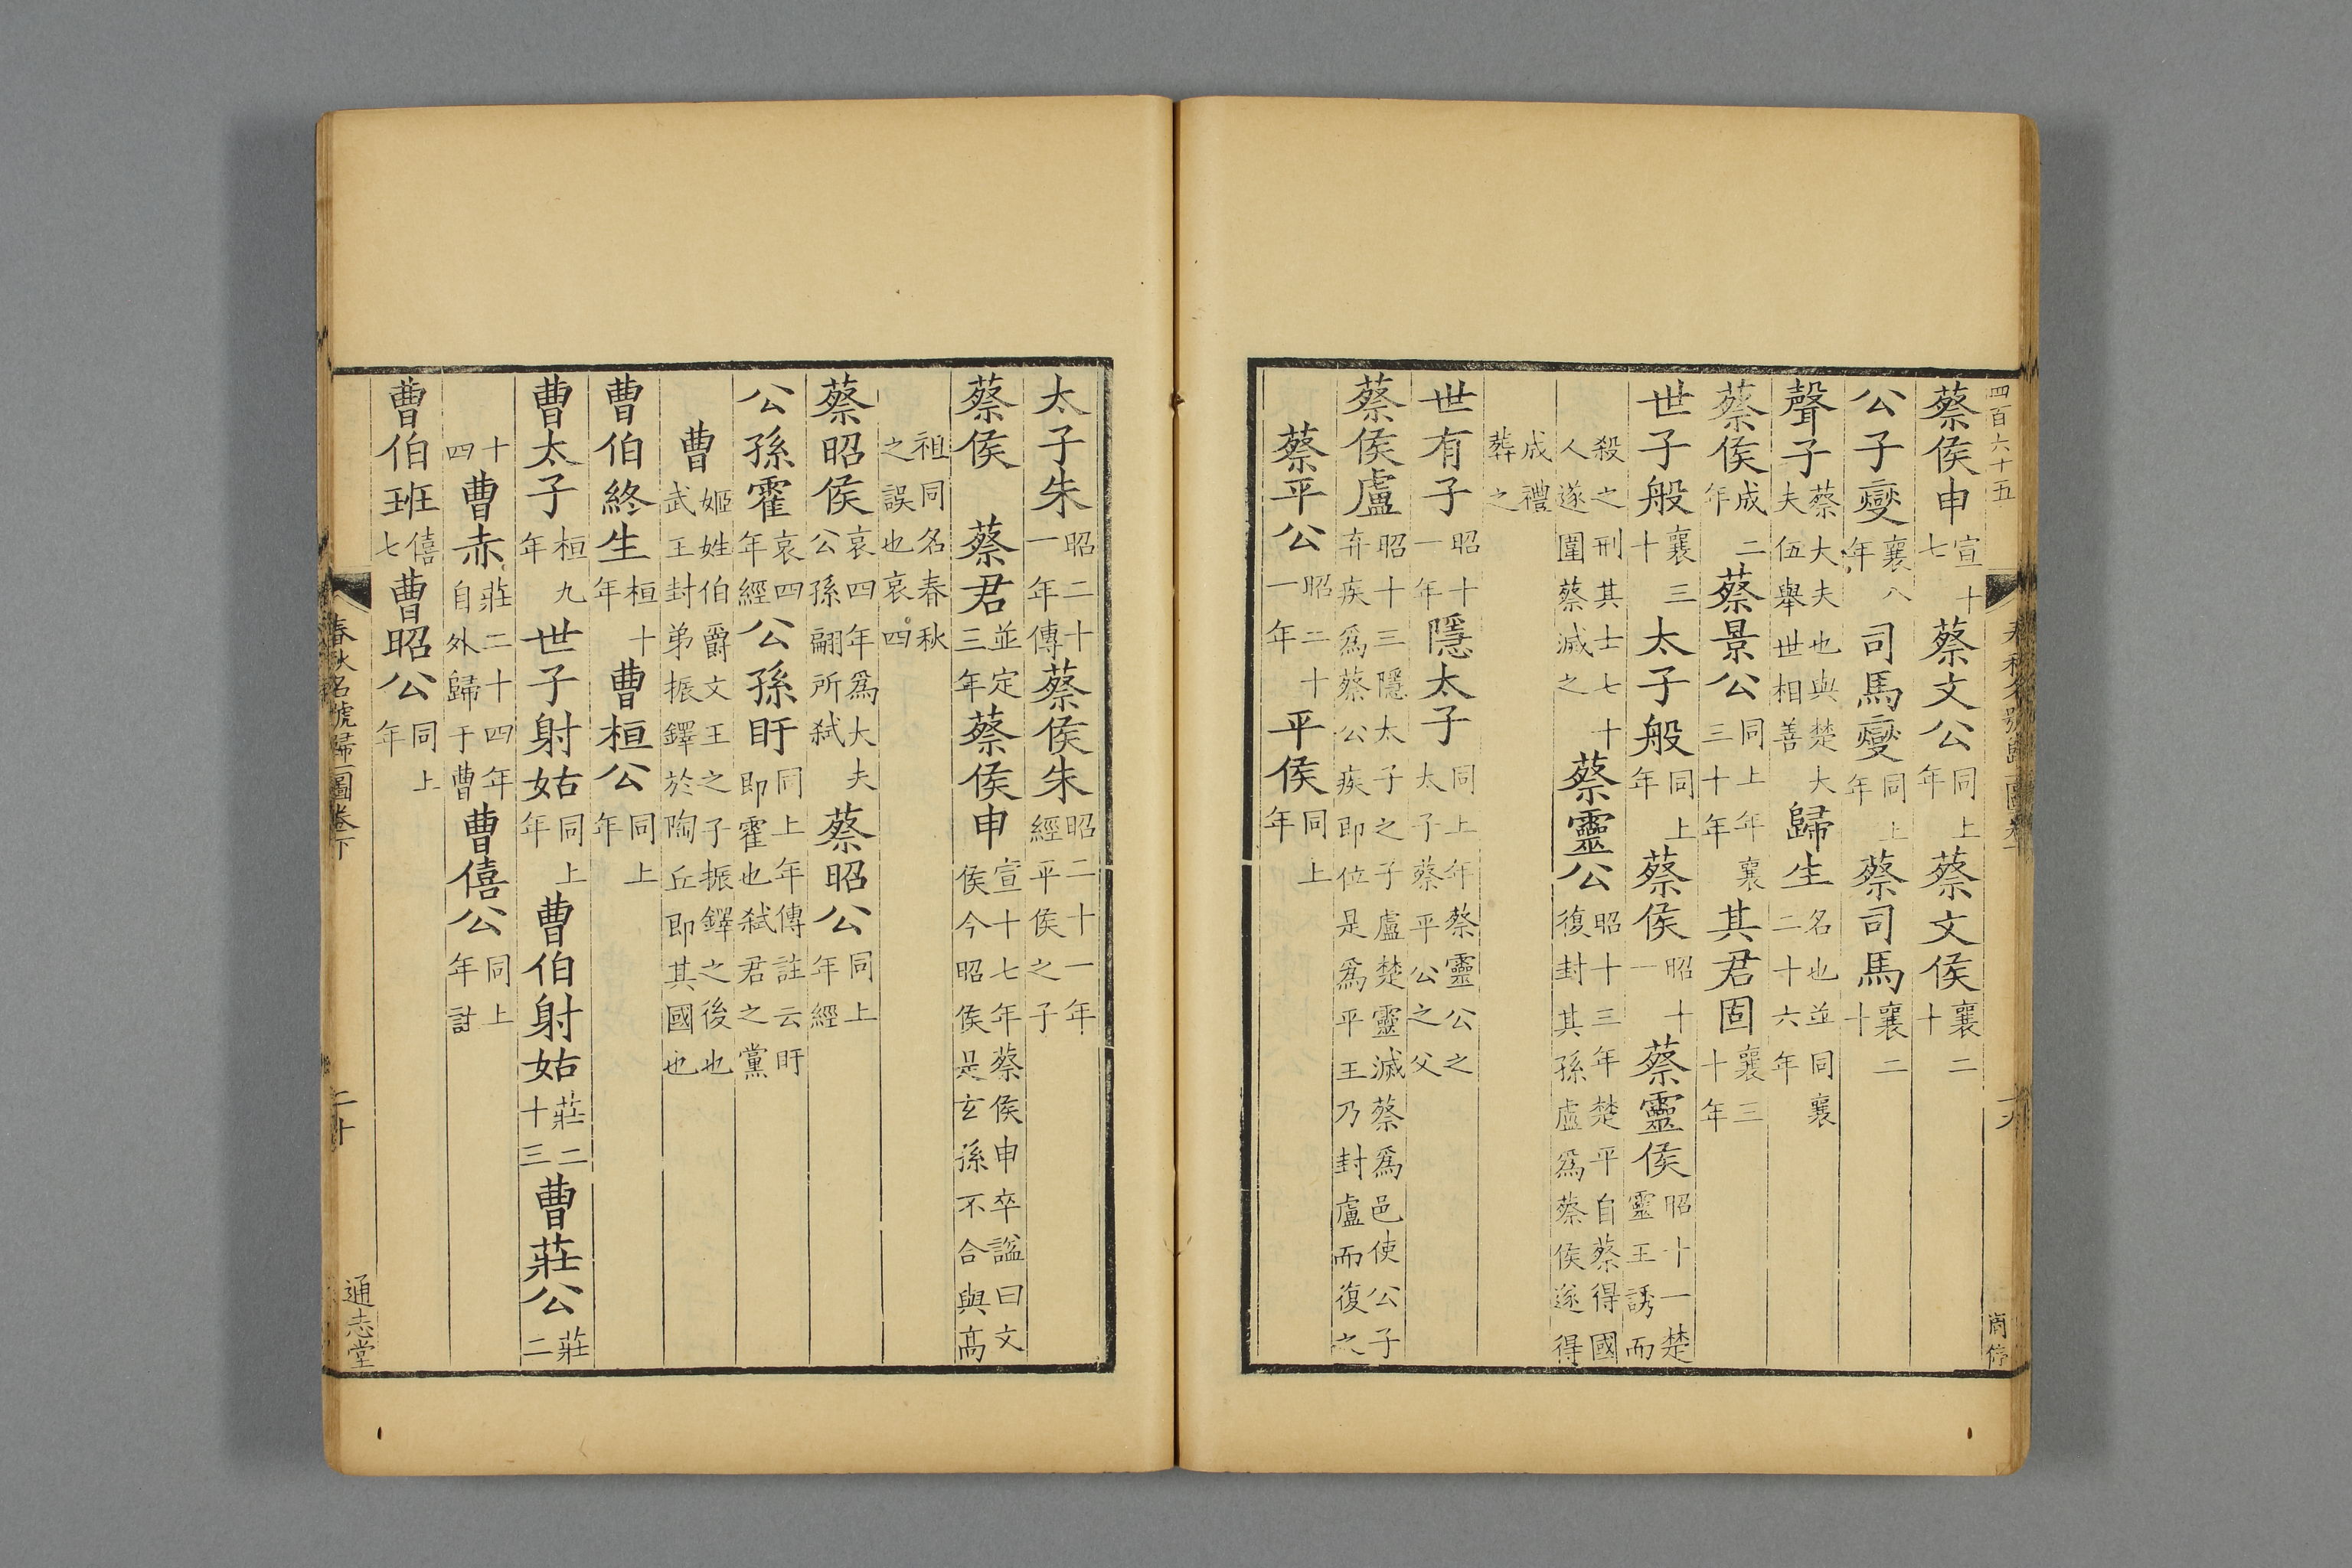 四百六十五
蔡侯申宣十七蔡文公同上年蔡文侯襄二十
公子燮襄八年司馬燮同上年蔡司馬襄二十
聲子蔡大夫也與楚大夫伍舉世相善歸生名也並同襄二十六年
蔡侯成二年蔡景公同上年襄三十年其君固襄三十年
世子般襄三十太子般同上年蔡侯昭十一蔡靈侯昭十一楚靈王誘而
殺之刑其士七十人遂圍蔡滅之蔡靈公昭十三年楚平自蔡得國復封其孫虛爲蔡侯遂得
成禮葬之
世有子昭十一年隱太子同上年蔡靈公之太子蔡平公之父
蔡侯盧昭十三隱太子之子盧楚靈滅蔡爲邑使公子弃疾爲蔡公疾即位是爲平王乃封盧而復之
蔡平公昭二十一年平侯同上年
太子朱昭二十一年傳蔡侯朱昭二十一年經平侯之子
蔡侯 蔡君並定三年蔡侯申宣十七年蔡侯申卒謚曰文侯今昭侯是玄孫不合與高
祖同名春秋之誤也哀四
蔡昭侯哀四年爲大夫公孫翩所弑蔡昭公同上年經
公孫霍哀四年經公孫盱同上年傳註云盱即霍也弑君之黨
曹姬姓伯爵文王之子振鐸之後也武王封弟振鐸於陶丘即其國也
曹伯終生桓十年曹桓公同上年
曹太子桓九年世子射姑同上年曹伯射姑莊二十三曹莊公莊二
十四曹赤莊二十四年自外歸于曹曹僖公同上年
曹伯班僖七曹昭公同上年
春秋名號歸一圖卷下
二十
通志堂